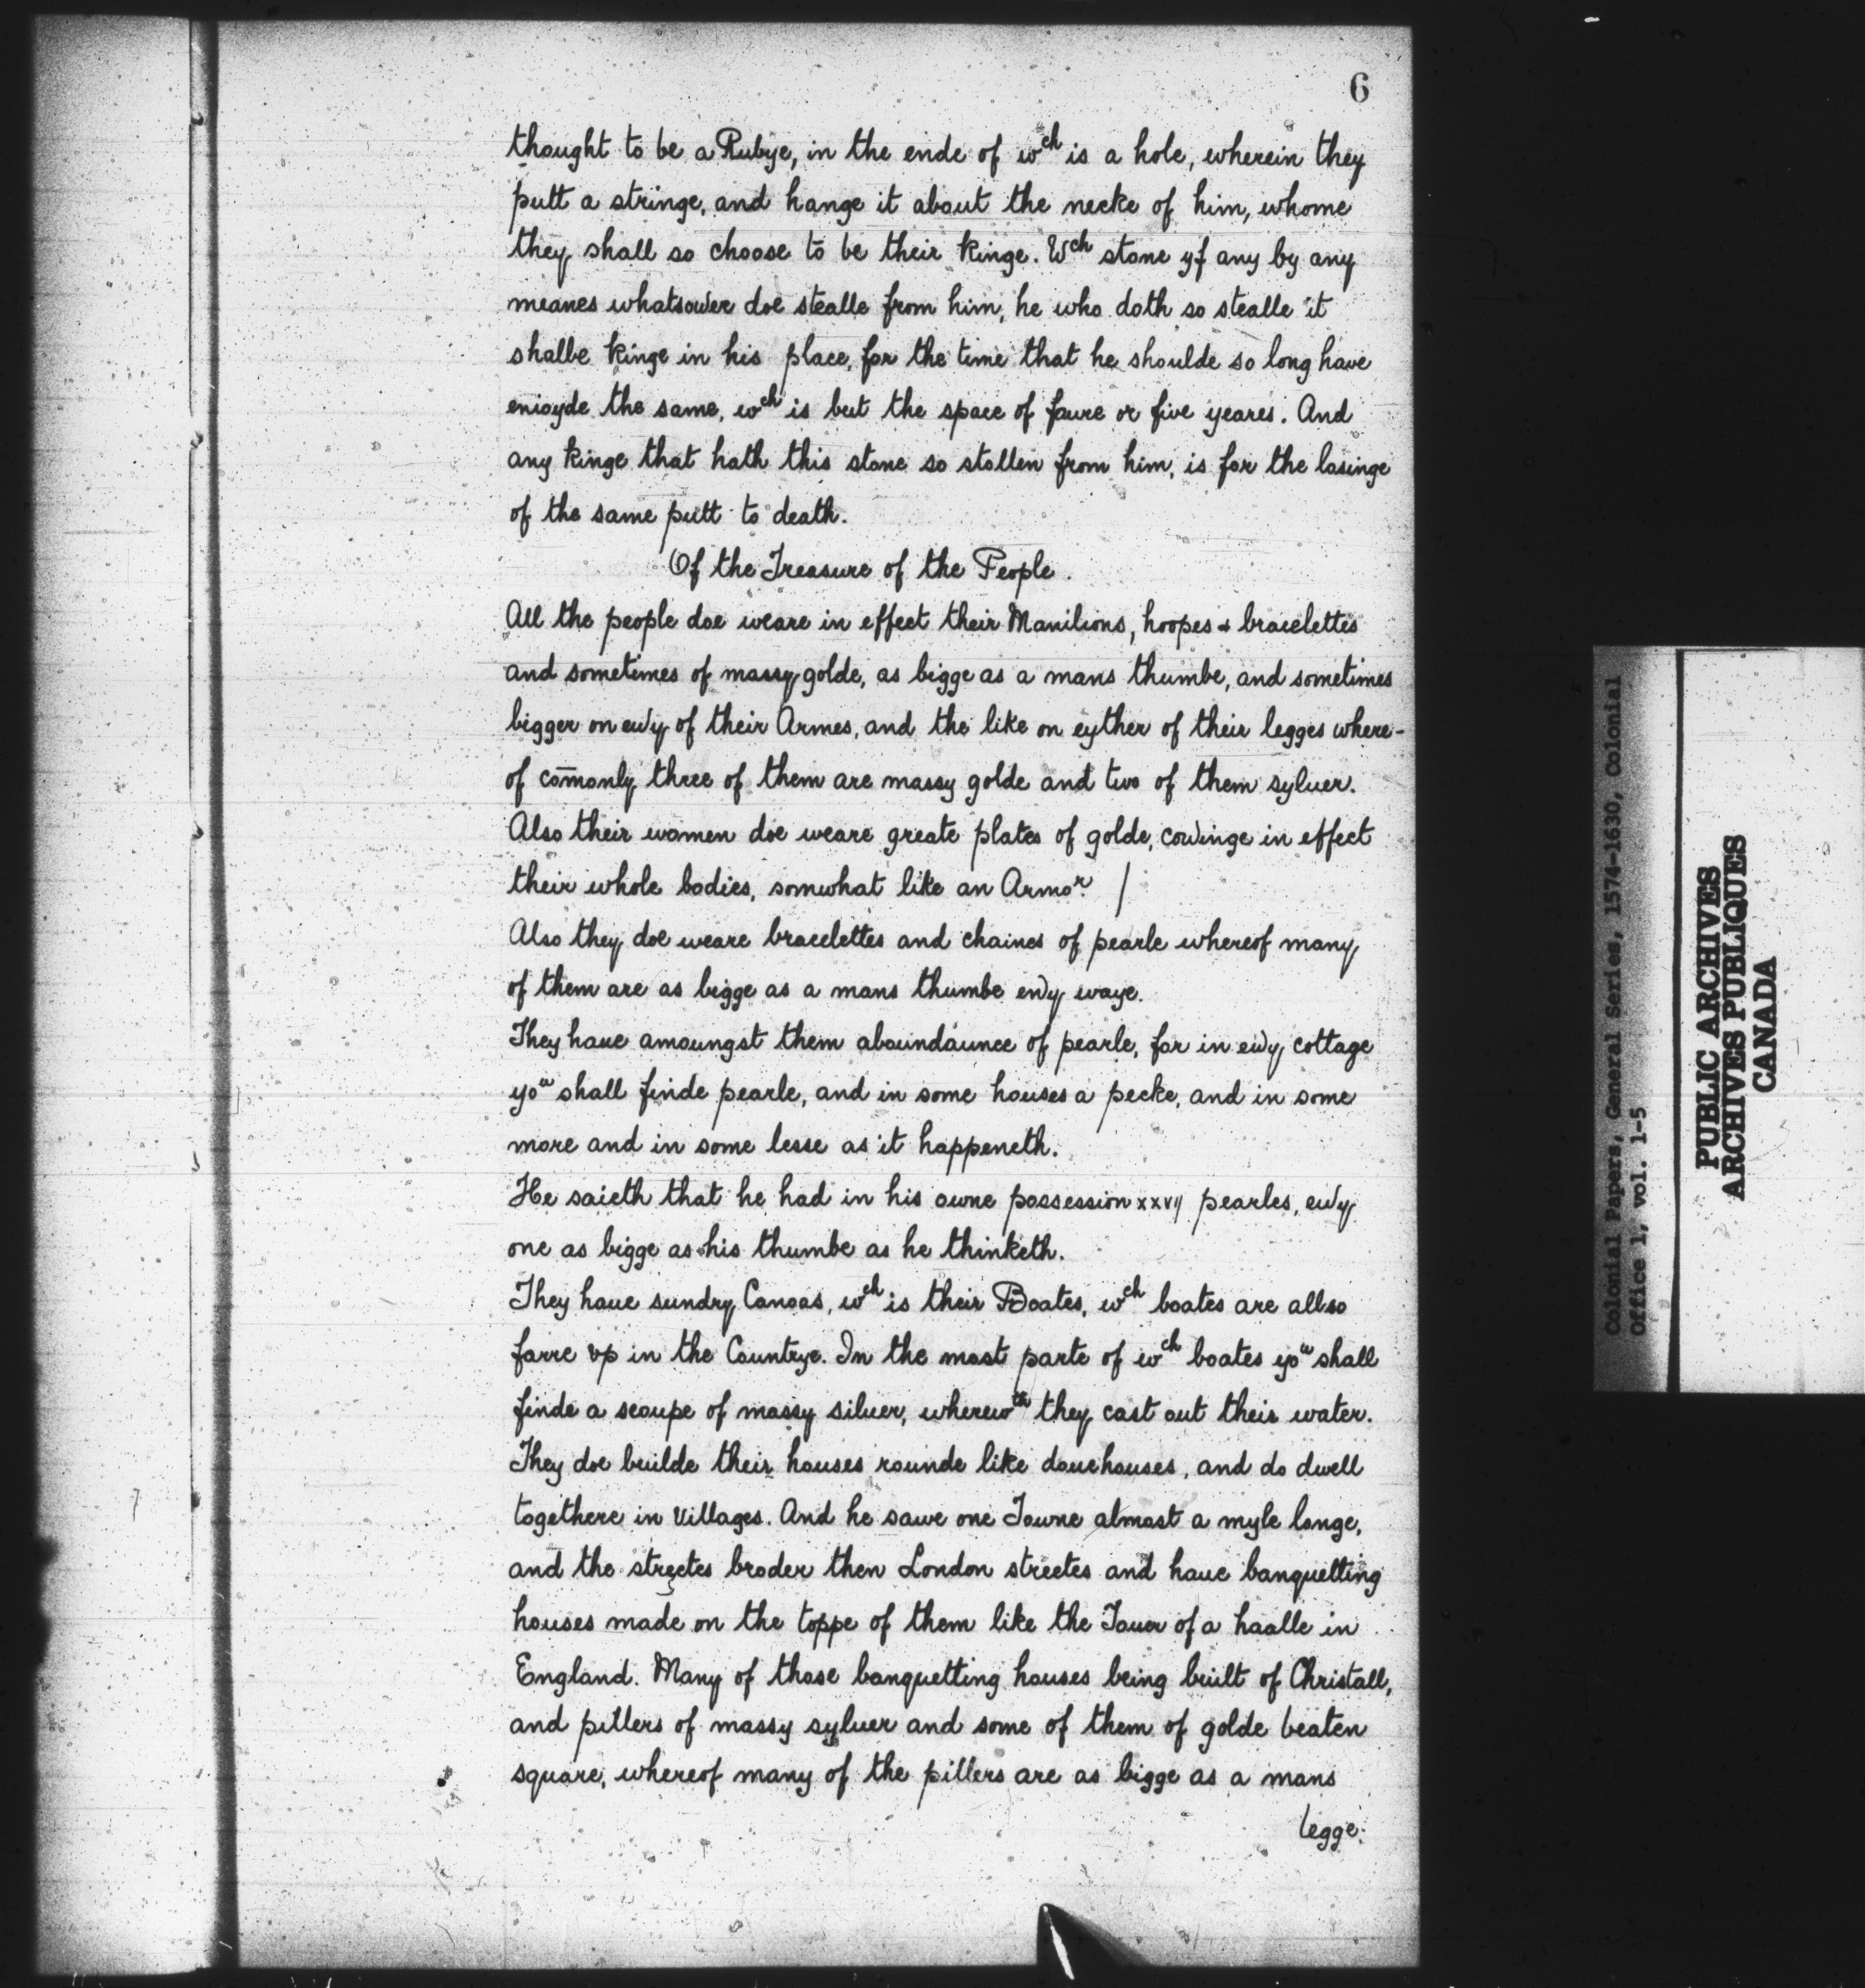 6
thought to be a Rubye, in the ende of wch is a hole, wherein they
putt a stringe, and hange it about the necke of him, whome
they shall so choose to be their kinge. Wch stone yf any by any
meanes whatsouer doe stealle from him, he who doth so stealle it
shalbe kinge in his place, for the time that he shoulde so long have
enioyde the same, wch is but the space of foure or five yeares. And
any kinge that hath this stone so stollen from him, is for the losinge
of the same putt to death.
Of the Treasure of the People.
All the people doe weare in effect their Manilions, hoopes & bracelettes
and sometimes of massy golde, as bigge as a mans thumbe, and sometimes
bigger on eu'y of their Armes, and the like on eyther of their legges where-
of com̄only three of them are massy golde and two of them syluer.
Also their women doe weare greate plates of golde, cou'inge in effect
their whole bodies, somwhat like an Armor. /
Also they doe weare bracelettes and chaines of pearle whereof many
of them are as bigge as a mans thumbe eu'y waye.
They haue amoungst them aboundaunce of pearle, for in eu'y cottage
you shall finde pearle, and in some houses a pecke, and in some
more and in some lesse as it happeneth.
He saieth that he had in his owne possession xxvij pearles, eu'y
one as bigge as his thumbe as he thinketh.
They haue sundry Canoas, wch is their Boates, wch boates are allso
farre vp in the Countrye. In the most parte of wch boates you shall
finde a scoupe of massy siluer, wherewth they cast out their water.
They doe builde their houses rounde like douehouses, and do dwell
togethere in Villages. And he sawe one Towne almost a myle longe,
and the streetes broder then London streetes and haue banquetting
houses made on the toppe of them like the Touer of a haalle in
England. Many of those banquetting houses being built of Christall,
and pillers of massy syluer and some of them of golde beaten
square, whereof many of the pillers are as bigge as a mans
legge.
Colonial Papers, General Series, 1574-1630, Colonial
Office 1, vol. 1-5
PUBLIC ARCHIVES
ARCHIVES PUBLIQUES
CANADA